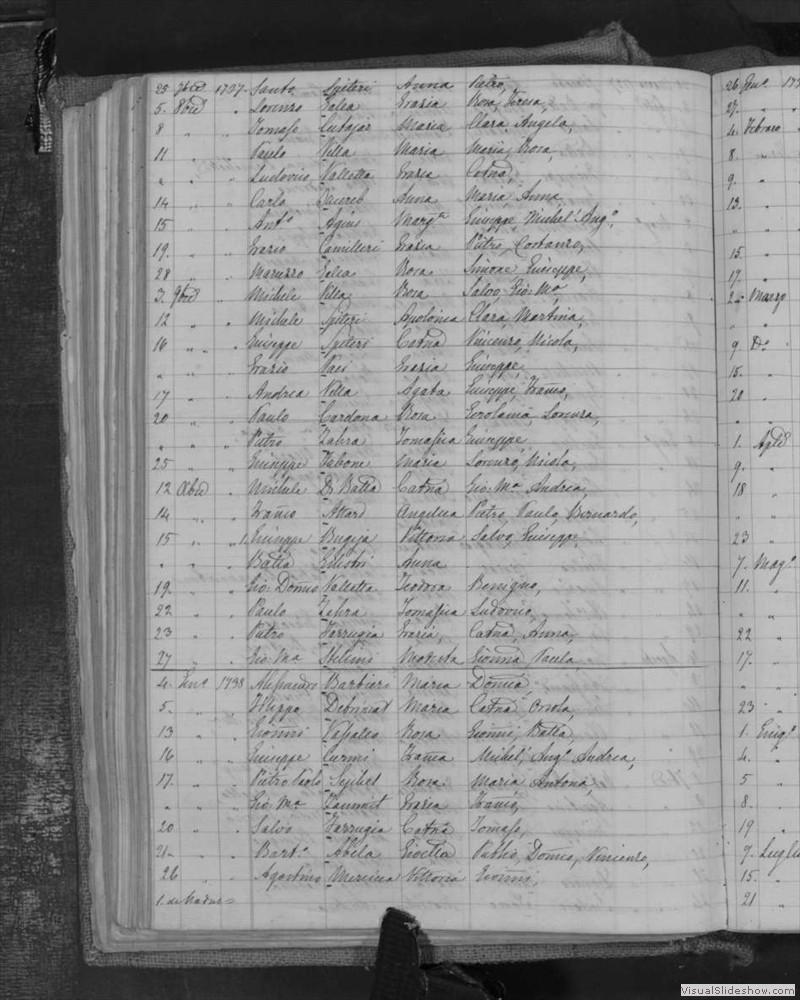 25 7bre 1737 Santo Spiteri Anna Pietro,
5. 8bre " Lorenzo Galea Grazia Rosa, Teresa,
8 " " Tomaso Cutajar Maria Clara, Angela,
11 " " Paulo Villa Maria Maria, Rosa,
" " " Ludovico Valletta Grazia Catna,
14 " " Carlo Anna Maria, Anna,
15 " " Anto Agius Margta Giuseppe, Michel' Ango,
19. " " Grazio Camilleri Grazia Pietro, Costanzo,
28 " " Maruzzo Galea Rosa Simone, Giuseppe,
3. 9bre " Michele Villa Rosa Salvo, Gio: Ma
12 " " Michele Spiteri Apolonia Clara, Martina,
16 " " Giuseppe Spiteri Catna Vincenzo, Nicola,
" " " Grazio Paci Grazia Giuseppe,
17 " " Andrea Villa Agata Giuseppe,
20 " " Paulo Cardona Rosa Gerolama, Lorenza,
" " " Pietro Zahra Tomasina Giuseppe
25 " " Giuseppe Zabone Maria Lorenzo, Nicola,
12 Xbre " Michele Di Batta Catna Gio: Ma Andrea,
14 " " Attard Angelica Pietro, Paulo, Bernardo,
15 " " 1. Giuseppe Bugeja Vittoria Salvo, Giuseppe,
" " " Batta Anna
19. " " Gio: Domco Valletta Teodora Benigno,
22 " " Paulo Zahra Tomasina Ludovico,
23 " " Pietro Farrugia Grazia, Catna, Anna,
27 " " Gio: Ma Modesta Gionna Paula
4. Genº 1738 Alessandro Barbieri Maria Domca,
5. " " Filippo Debrincat Maria Catna Orsola,
13 " " Gionni Vassallo Rosa Gionni, Batta,
16 " " Giuseppe Curmi Michel' Angº Andrea,
17. " " Pietro Paolo Rosa Maria Antona,
" " " Gio: Ma Zammit Grazia
20 " " Salvo Farrugia Catna Tomaso,
21. " " Bartº Abila Gioella Publio, Domco, Vincenzo,
26 " " Agostino Vittoria Gionni,
26 Genº 173
27. "
4. Febraro
8. "
9. "
13. "
" "
15. "
17. "
2. Marzo
" "
9 Dº
15. "
20 "
" "
1. Aple
9. "
18 "
" "
23 "
7. Magº
11. "
22 "
17. "
" "
23 "
1. Giugº
4. "
5 "
8. "
19 "
7. Luglio
15. "
21 "
VisualSlideshow.com